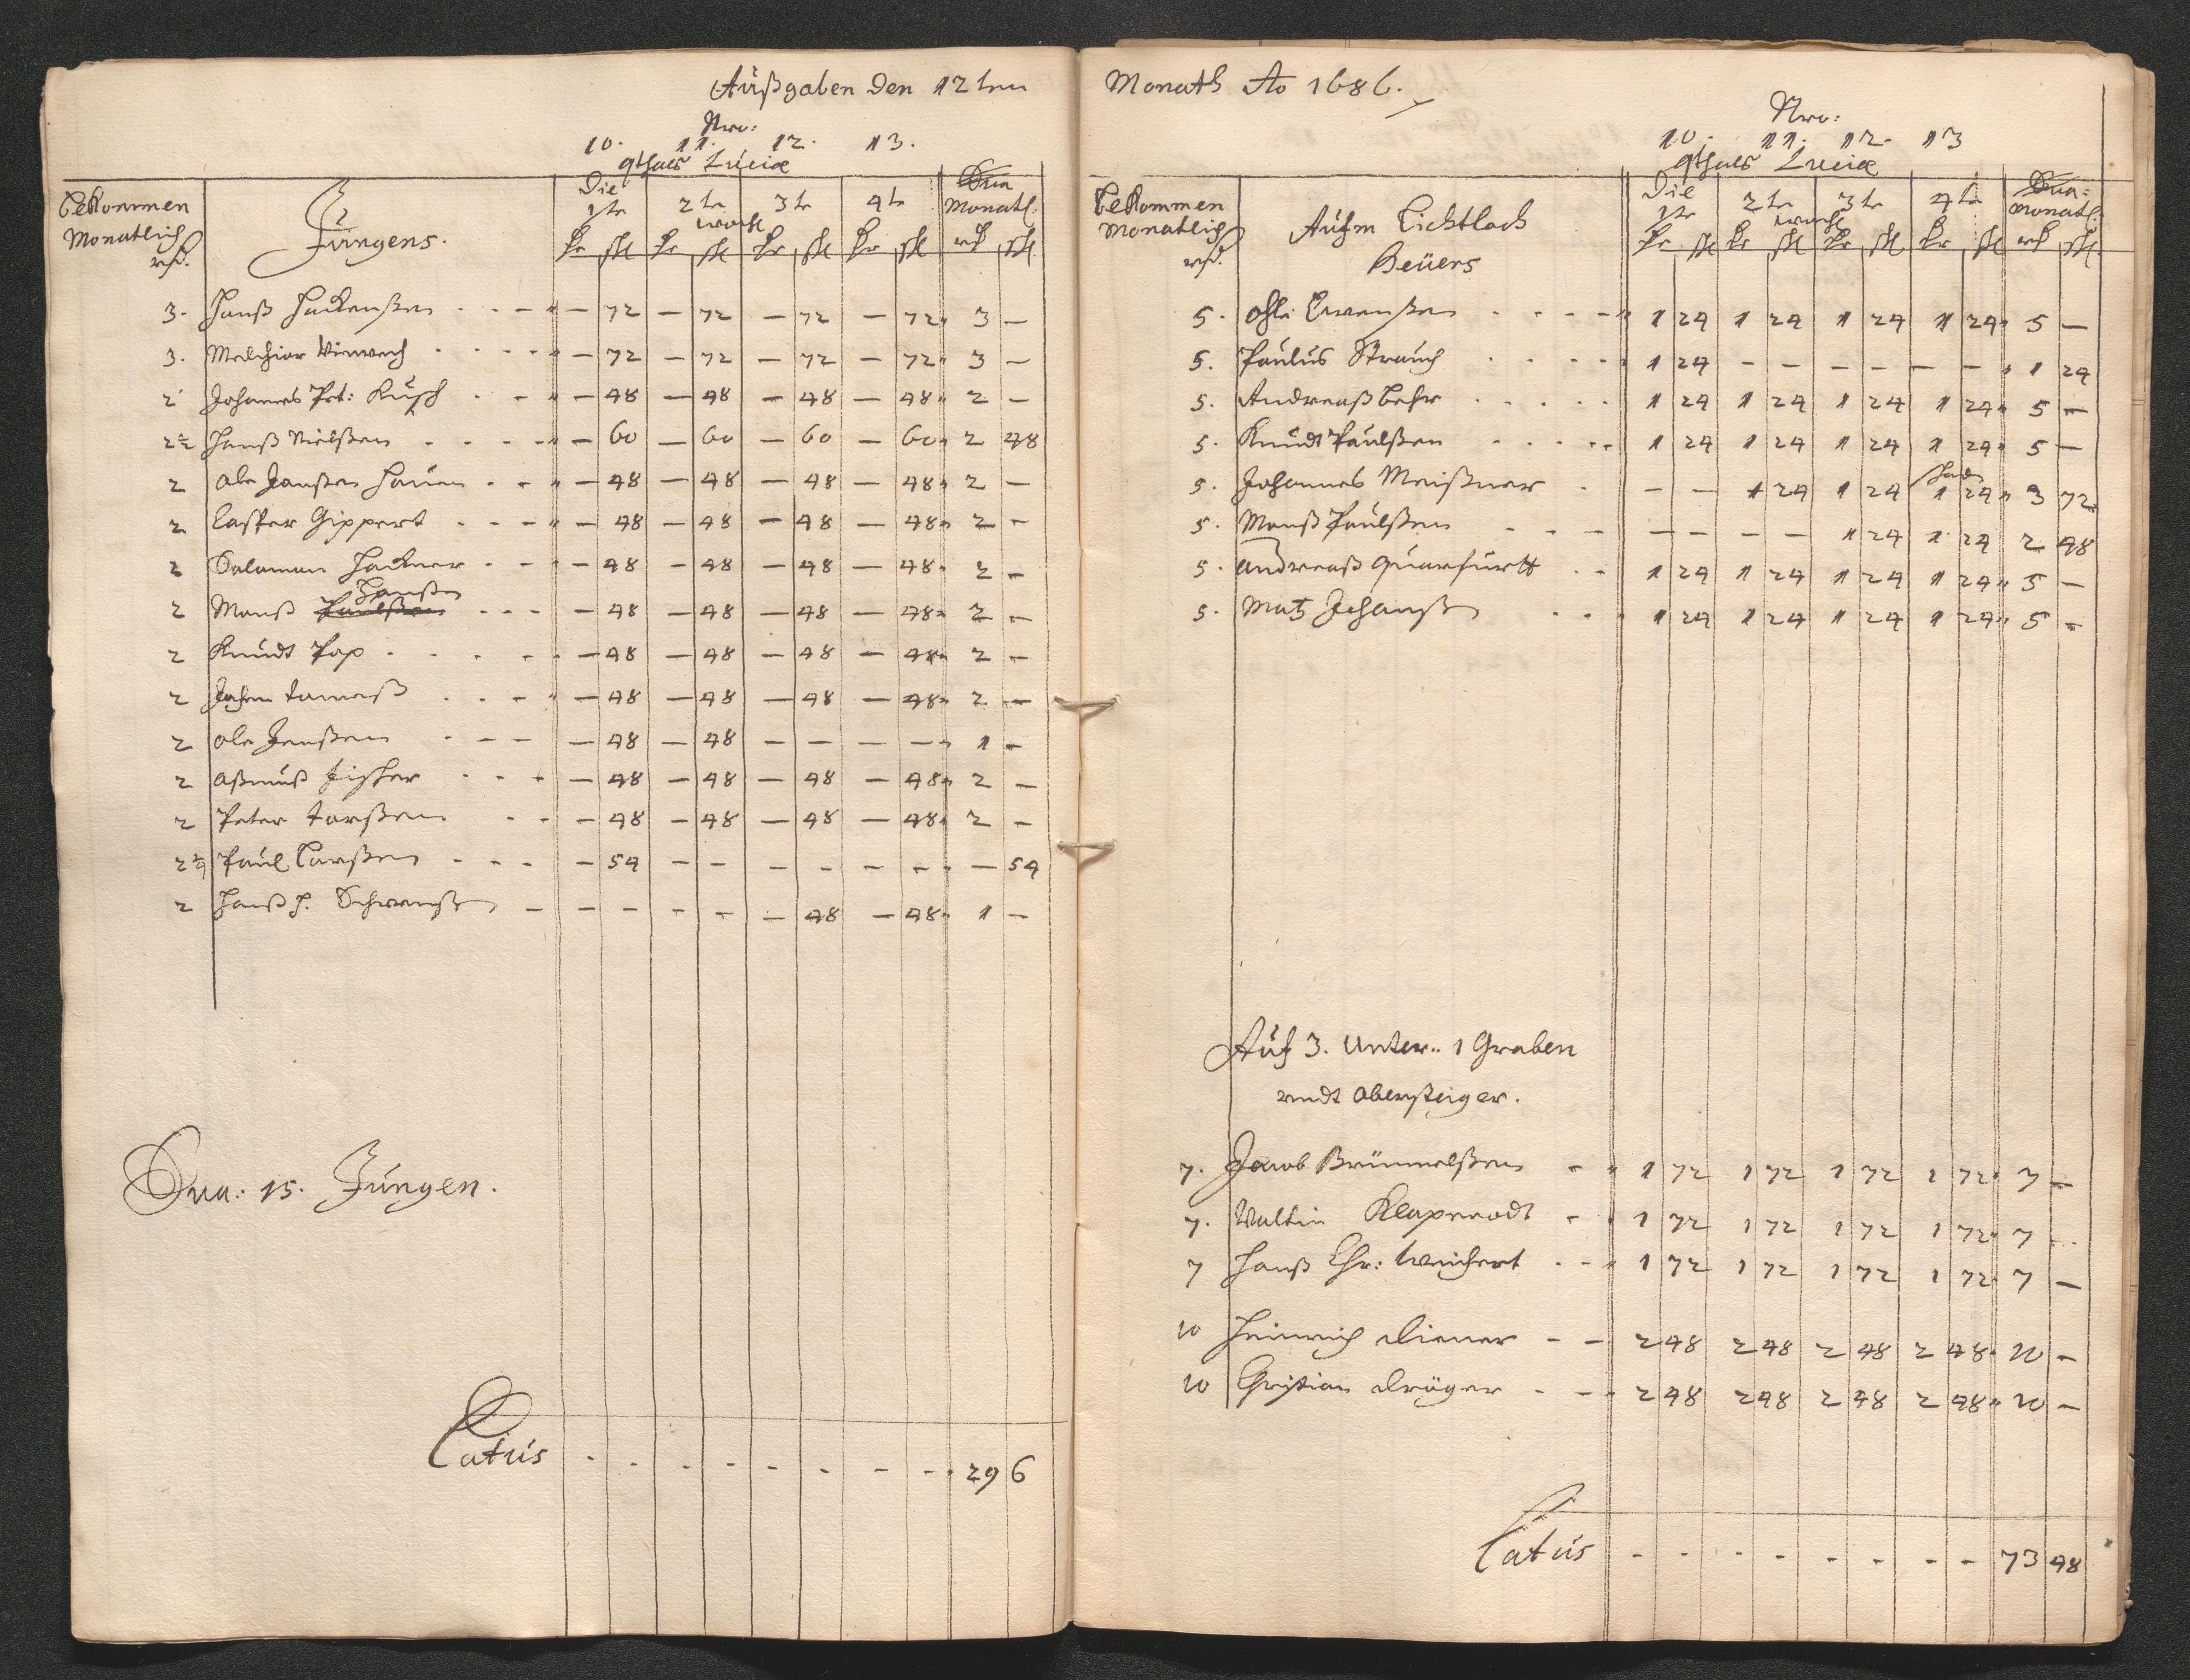 Außgaben den 12ten
Nro:
10. 11. 12. 13.
qthals Luciæ
bekommen Monatlich rß.
Jungens.
Die 1te 2te 3te 4te
woche
Sua Monatl:
3. Hanß Hackenßen - 72 - 72 - 72 - 72 3 -
3. Melchior - 72 - 72 - 72 - 72 3 -
2 Johannes Pet: Kusch - 48 - 48 - 48 - 48 2 -
2½ Hanß Nielßen - 60 - 60 - 60 - 60 2 48
2 Ole Hanßen - 48 - 48 - 48 - 48 2 -
2 Casper Gippert - 48 - 48 - 48 - 48 2 -
2 Salomon Hackner - 48 - 48 - 48 - 48 2 -
Hanßen
2 Monß Paulßen - 48 - 48 - 48 - 48 2 -
2 Knudt Pop - 48 - 48 - 48 - 48 2 -
2 Jochen - 48 - 48 - 48 - 48 2 -
2 Ole Jenßen - 48 - 48 - - - - 1 -
2 Aßmuß Fischer - 48 - 48 - 48 - 48 2 -
2 Peter Torßen - 48 - 48 - 48 - 48 2 -
2¼ Paul Larßen - 54 - - - - - - - 54
2 Hanß H. - - - - - 48 - 48 1 -
Sua: 15. Jungen.
Latus 29 6
Monath Ao 1686.
Nro:
10. 11. 12. 13
qthals Luciæ
bekommen Monatlich rß.
Aufm Lichtloch
Beuers
Die 1te 2te 3te 4te
woche
Sua: Monatl:
5. 1 24 1 24 1 24 1 24 5 -
5. Paulus Strauch 1 24 - - - - - - 1 24
5. Andreaß Behr 1 24 1 24 1 24 1 24 5 -
5. Knudt Paulßen 1 24 1 24 1 24 1 24 5 -
5. Johannes Meißner - - 1 24 1 24 1 24 3 72
5. Monß Paulßen - - - - 1 24 1 24 2 48
5. Andreaß Quarfurtt 1 24 1 24 1 24 1 24 5 -
5. Matz Johanß 1 24 1 24 1 24 1 24 5 -
Auf 3. Unter.. 1 Graben
undt obersteiger.
7. Jacob Brummelßen 1 72 1 72 1 72 1 72 7 -
7. Valtin Klaproodt 1 72 1 72 1 72 1 72 7 -
7 Hanß Chr: Weichert 1 72 1 72 1 72 1 72 7 -
10 Heinrich Diener 2 48 2 48 2 48 2 48 10 -
10 Christian Dräger 2 48 2 48 2 48 2 48 10 -
Latus 73 48